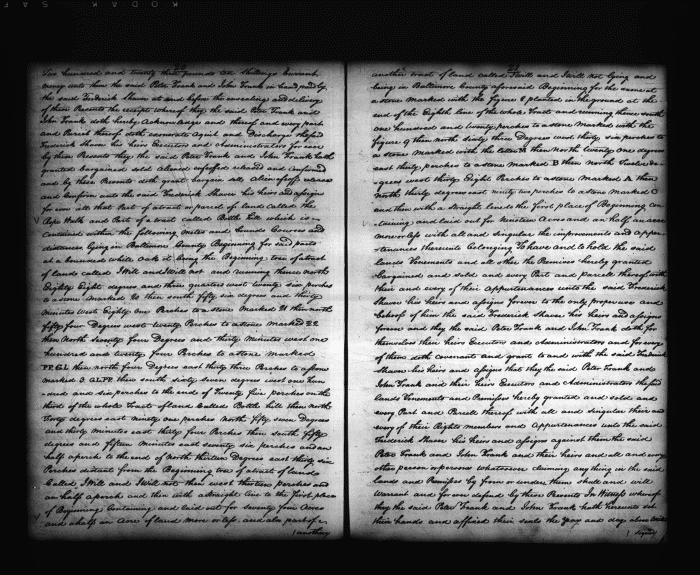 Two hundred and twenty three pounds ten shillings Current
money unto them the said Peter Frank and John Frank in hand paid by
the said Frederick Shaver at and before the ensealing and delivery
of these Presents the receipt whereof they the said Peter Frank and
John Frank doth hereby Acknowledge and thereof and every part
and Parcel thereof doth exonerate acquit and Discharge the said
Frederick Shaver his heirs Executors and Administrators for ever
by these Presents they the said Peter Frank and John Frank hath
granted bargained sold aliened enfeoffed released and Confirmed
and by these Presents doth grant bargain sell Alien enfeoff release
and Confirm unto the said Frederick Shaver his heirs and assigns
for ever all that Part of a tract or parcel of land called the
and Part of a tract called Bottle hill which is
Contained within the following metes and bounds Courses and
distances lying in Baltimore County Beginning for said parts
at a bounded white Oak it being the Beginning tree of a tract
of lands called I Will and I Will not and running thence north
Eighty Eight degrees and three quarters west twenty six perches
to a stone marked 20 then south fifty six degrees and thirty
minutes West Eighty One Perches to a stone Marked 21 then north
fifty four Degrees west twenty Perches to a stone marked 22
then North seventy four Degrees and thirty minutes west One
hundred and twenty four Perches to a stone marked
PF.GL then north four Degrees east thirty three Perches to a stone
marked 3 GLPF then south sixty seven degrees west one hun
-dred and six perches to the end of Twenty five perches on the
third of the whole Tract of land called Bottle hill then north
Forty degrees east ninety one perches North fifty seven Degrees
and thirty minutes east thirty four Perches then south fifty
degrees and fifteen minutes east seventy six perches and an
half a perch to the end of North thirteen Degrees east thirty six
Perches distant from the Beginning tree of a tract of lands
Called I Will and I Will not then west thirteen perches and
an half a perch and then with a straight line to the first place
of Beginning Containing and laid out for seventy four Acres
and a half an Acre of land more or less and also part of
another
another tract of land called I will and I will not lying and
being in Baltimore County aforesaid Beginning for the same at
a stone Marked with the figure 6 planted in the ground at the
end of the Eighth line of the whole Tract and running thence south
one hundred and twenty perches to a stone marked with the
figure 9 then north sixty six Degrees west thirty six perches to
a stone marked with the letter A then North twenty one degrees
east thirty perches to a stone marked B then north twelve de-
-grees west thirty Eight Perches to a stone Marked then
north thirty degrees east ninety two perches to a stone marked C
and then with a straight line to the first place of Beginning con
-taining and laid out for Nineteen Acres and an half an acre
more or less with all and singular the improvements and appur-
tenances thereunto belonging To have and to hold the said
lands Tenements and all other the Premises hereby granted
bargained and sold and every Part and parcel thereof with
their and every of their Appurtenances unto the said Frederick
Shaver his heirs and assigns forever to the only proper use and
behoof of him the said Frederick Shaver his heirs and assigns
forever and they the said Peter Frank and John Frank doth for
themselves their heirs Executors and Administrators and for every
of them doth covenant and grant to and with the said Frederick
Shaver his heirs and assigns that they the said Peter Frank and
John Frank and their heirs Executors and Administrators the said
lands Tenements and Premises hereby granted and sold and
every Part and Parcel thereof with all and singular their and
every of their Rights members and Appurtenances unto the said
Frederick Shaver his heirs and assigns against them the said
Peter Frank and John Frank and their heirs and all and every
other person or persons whatsoever claiming any thing in the said
lands and Premises by from or under them shall and will
Warrant and for ever defend by these Presents In Witness whereof
they the said Peter Frank and John Frank hath hereunto set
their hands and affixed their seals the Day and
signed